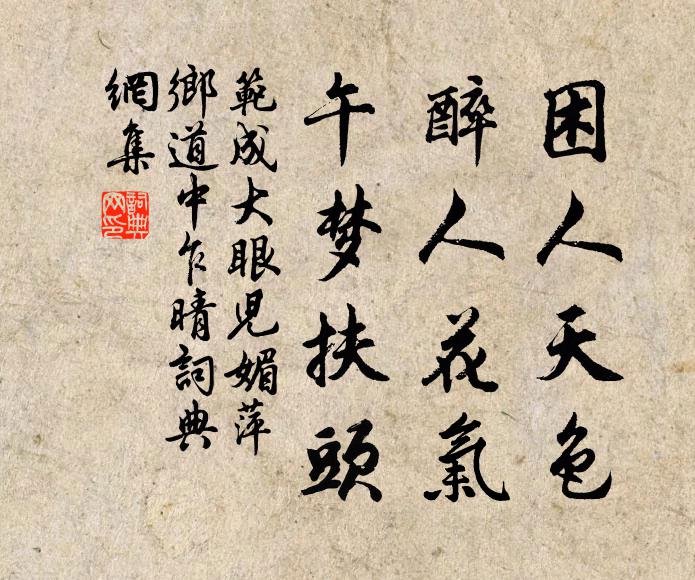 困人天色
醉人花氣
午梦扶頭
範成大眼児媚萍
鄉道中乍晴詞典
網集
詞典
网印